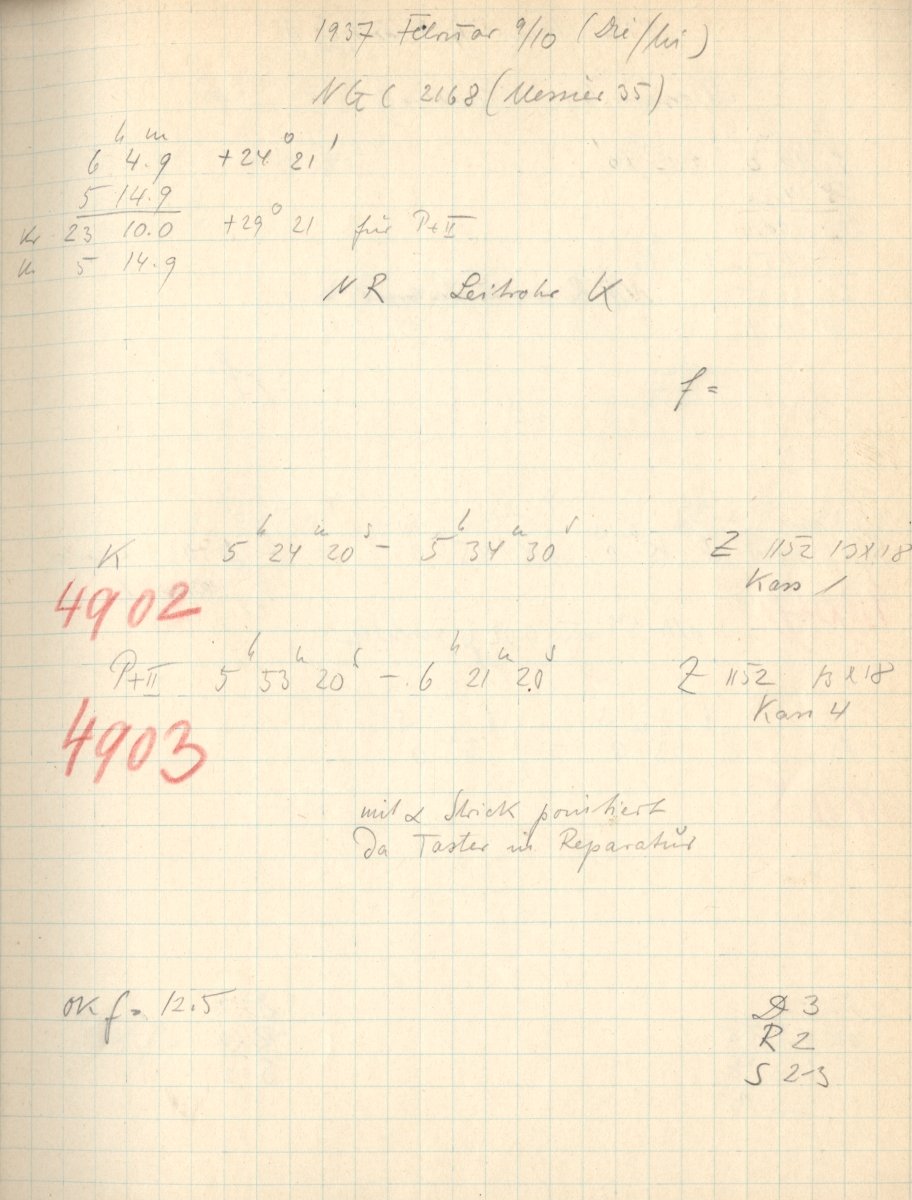 1937 Februar 9/10 (Die/Mi)
NGC 2168 (Messier 35)
h m
6 4.9 +24° 21'
5 14.9
Kr 23 10.0 +29° 21 für P+II
5 14.9
NR Leitrohr K
f =
K 5h 24m 20s - 5h 34m 30s Z 1152 13x18
Kass 1
4902
P+II 5h 53m 20s - 6h 21m 20s Z 1152 13x18
Kass 4
4903
mit α Strick pointiert
Da Taster in Reparatur
OK f = 12.5
D 3
R 2
S 2-3